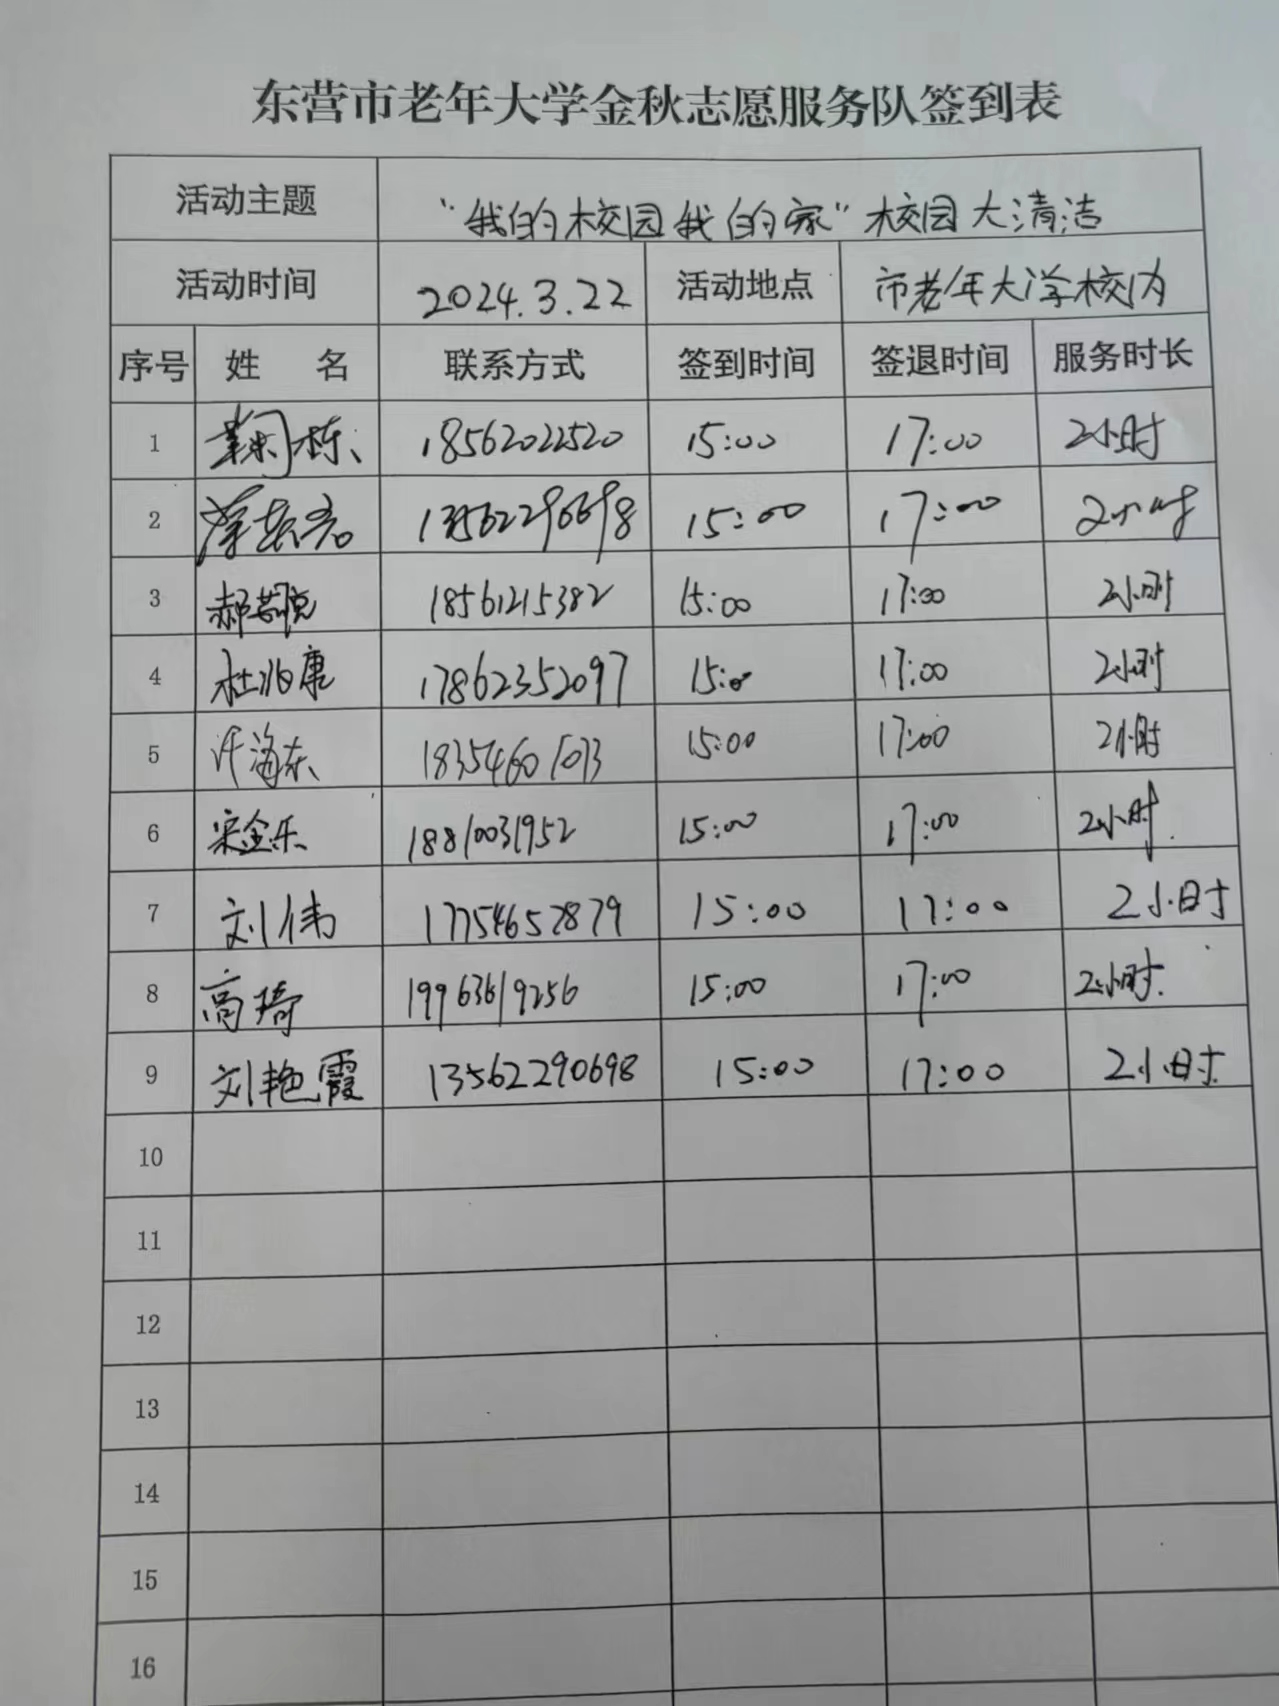 东营市老年大学金秋志愿服务队签到表
活动主题 “我的校园我的家”校园大清洁
活动时间 2024.3.22 活动地点 市老年大学校内
序号 姓 名 联系方式 签到时间 签退时间 服务时长
1 鞠栋 18562022520 15:00 17:00 2小时
2 15:00 17:00 2小时
3 郝若悦 18561215382 15:00 17:00 2小时
4 杜兆康 17862352097 15:00 17:00 2小时
5 许海东 15:00 17:00 2小时
6 宋金乐 18810031952 15:00 17:00 2小时
7 刘伟 17754657879 15:00 17:00 2小时
8 高琦 19963619256 15:00 17:00 2小时.
9 刘艳霞 13562290698 15:00 17:00 2小时.
10
11
12
13
14
15
16